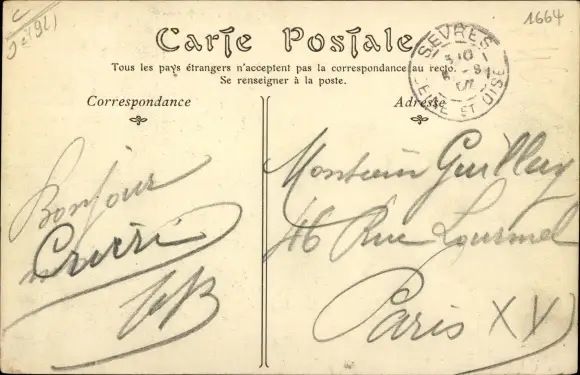 1664
Carte Postale
Tous les pays étrangers n'acceptent pas la correspondance au recto.
Se renseigner à la poste.
SEVRES
SEINE ET OISE
Correspondance
Adresse
Bonjour
Monsieur Guilluy
46 Rue Lourmel
Paris XV